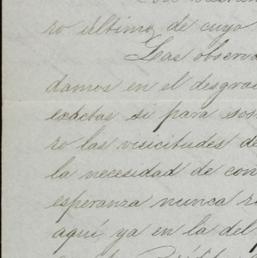 ro último, de cuyo
Las observa
damos en el desgrac
exactas si para som
ro las visicitudes de
la necesidad de con
esperanza nunca r
aquí ya en la del p